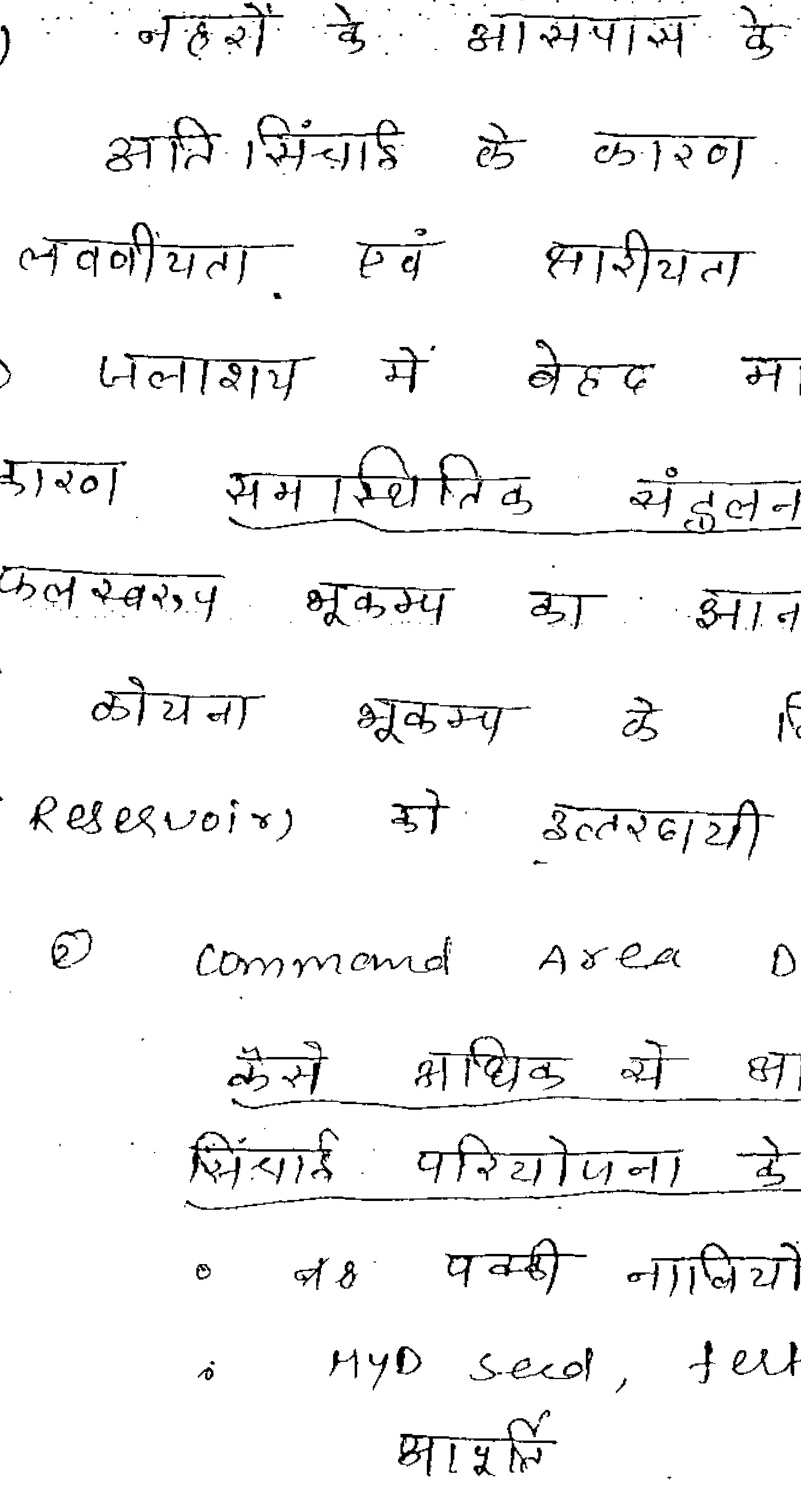 ) नहरों के आसपास के
अति सिंचाई के कारण
लवणीयता एवं क्षारीयता
) जलाशय में बेहद मा
कारण समस्थितिक संतुलन
फलस्वरूप भूकम्प का आन
कोयना भूकम्प के
Reservoir) को उत्तरदायी
② Command Area D
कैसे अधिक से अ
सिंचाई परियोजना के
० पक्की नालियों
० HYD seed, fert
आपूर्ति